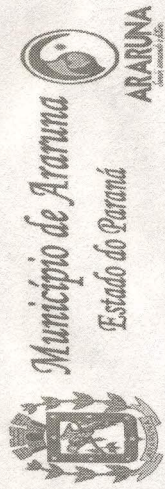 Município de Araruna
Estado do Paraná
ARARUNA